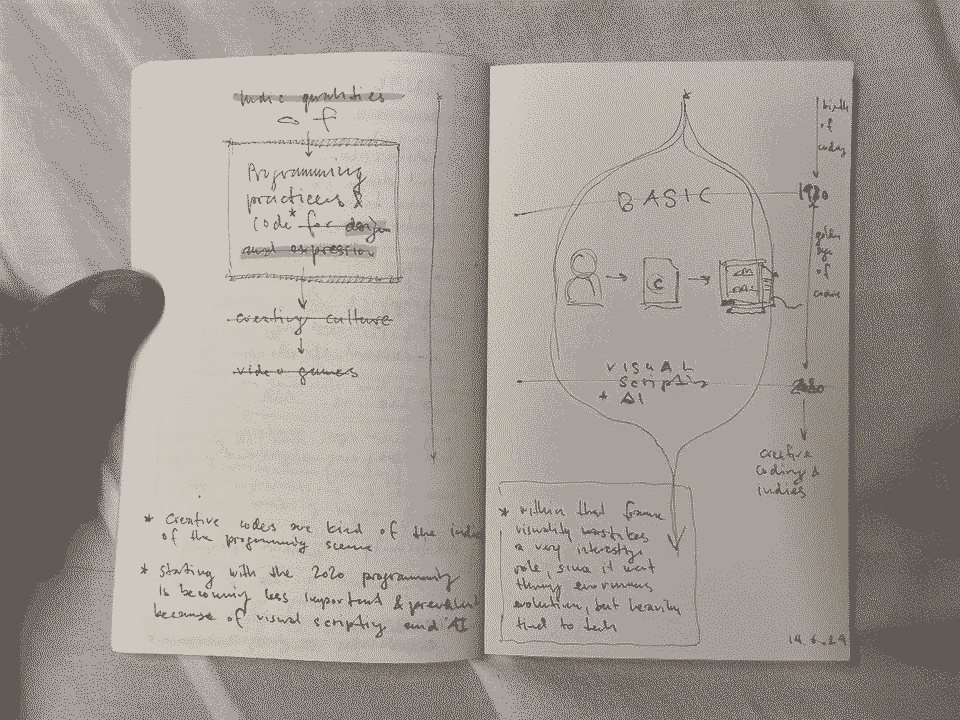 Indie qualities
of
Programming
practices &
code* for design
and expression
creating culture
video games
* Creative coders are kind of the indie
of the programming scene
* Starting with the 2020 programming
is becoming less important & prevalent
because of visual scripting and AI
BASIC
C
VISUAL
Scripting
+ AI
birth
of
coding
1980
golden
age
of
coding
2020
creative
coding &
indies
* within that frame
visuality
a very interesting
role, since it went
enormous
evolution, but heavily
tied to tech
14.6.24